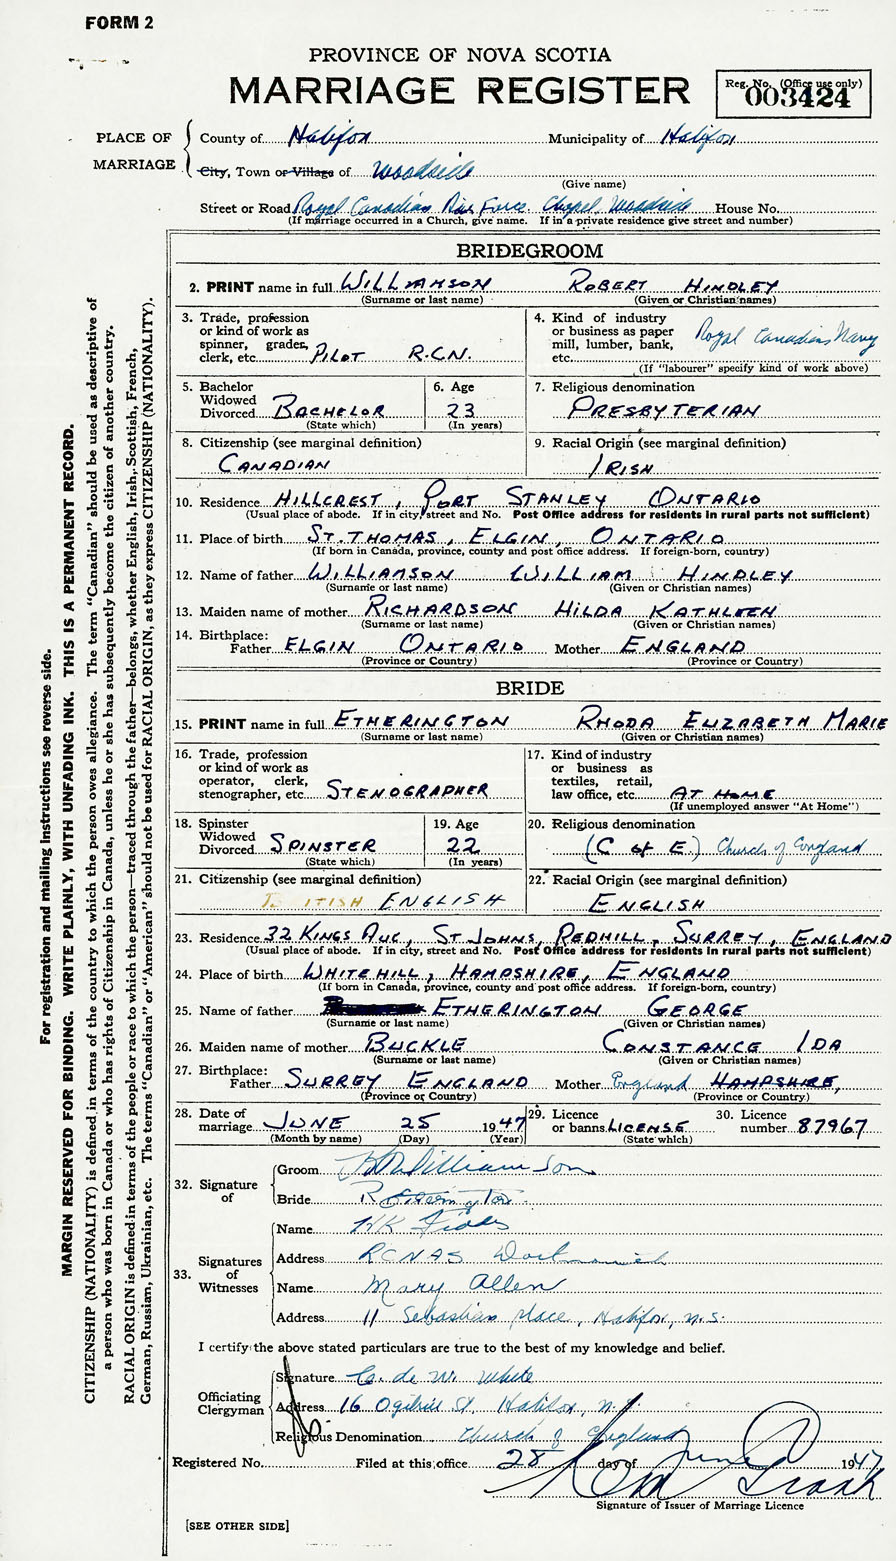 FORM 2
PROVINCE OF NOVA SCOTIA
MARRIAGE REGISTER
Reg. No. (Office use only)
003424
PLACE OF MARRIAGE
County of Halifax Municipality of Halifax
City, Town or Village of Woodside
(Give name)
Street or Road Royal Canadian Air Force Chapel, Woodside House No.
(If marriage occurred in a Church, give name. If in a private residence give street and number)
BRIDEGROOM
2. PRINT name in full WILLIAMSON ROBERT HINDLEY
(Surname or last name) (Given or Christian names)
3. Trade, profession
or kind of work as
spinner, grader,
clerk, etc. PILOT R.C.N.
4. Kind of industry
or business as paper
mill, lumber, bank,
etc. Royal Canadian Navy
(If "labourer" specify kind of work above)
5. Bachelor
Widowed
Divorced BACHELOR
(State which)
6. Age
23
(In years)
7. Religious denomination
PRESBYTERIAN
8. Citizenship (see marginal definition)
CANADIAN
9. Racial Origin (see marginal definition)
IRISH
10. Residence HILLCREST, PORT STANLEY ONTARIO
(Usual place of abode. If in city, street and No. Post Office address for residents in rural parts not sufficient)
11. Place of birth ST. THOMAS, ELGIN, ONTARIO
(If born in Canada, province, county and post office address. If foreign-born, country)
12. Name of father WILLIAMSON WILLIAM HINDLEY
(Surname or last name) (Given or Christian names)
13. Maiden name of mother RICHARDSON HILDA KATHLEEN
(Surname or last name) (Given or Christian names)
14. Birthplace:
Father ELGIN ONTARIO Mother ENGLAND
(Province or Country) (Province or Country)
BRIDE
15. PRINT name in full ETHERINGTON RHODA ELIZABETH MARIE
(Surname or last name) (Given or Christian names)
16. Trade, profession
or kind of work as
operator, clerk,
stenographer, etc. STENOGRAPHER
17. Kind of industry
or business as
textiles, retail,
law office, etc. AT HOME
(If unemployed answer "At Home")
18. Spinster
Widowed
Divorced SPINSTER
(State which)
19. Age
22
(In years)
20. Religious denomination
(C of E) Church of England
21. Citizenship (see marginal definition)
ENGLISH
22. Racial Origin (see marginal definition)
ENGLISH
23. Residence 32 KINGS AVE, ST JOHNS, REDHILL, SURREY, ENGLAND
(Usual place of abode. If in city, street and No. Post Office address for residents in rural parts not sufficient)
24. Place of birth WHITEHILL, HAMPSHIRE, ENGLAND
(If born in Canada, province, county and post office address. If foreign-born, country)
25. Name of father ETHERINGTON GEORGE
(Surname or last name) (Given or Christian names)
26. Maiden name of mother BUCKLE CONSTANCE IDA
(Surname or last name) (Given or Christian names)
27. Birthplace:
Father SURREY ENGLAND Mother England HAMPSHIRE,
(Province or Country) (Province or Country)
28. Date of
marriage JUNE 25 1947
(Month by name) (Day) (Year)
29. Licence
or banns LICENSE
(State which)
30. Licence
number 87967
32. Signature of
Groom R H Williamson
Bride R Etherington
33. Signatures of Witnesses
Name
Address RCNAS Dartmouth
Name Mary Allen
Address 11 Sebastian Place, Halifax, N.S.
I certify the above stated particulars are true to the best of my knowledge and belief.
Officiating Clergyman
Signature C. de W. White
Address 16 Ogilvie St. Halifax, N.S.
Religious Denomination Church of England
Registered No. Filed at this office 28 day of June 1947
Signature of Issuer of Marriage Licence
[SEE OTHER SIDE]
For registration and mailing instructions see reverse side.
MARGIN RESERVED FOR BINDING. WRITE PLAINLY, WITH UNFADING INK. THIS IS A PERMANENT RECORD.
CITIZENSHIP (NATIONALITY) is defined in terms of the country to which the person owes allegiance. The term "Canadian" should be used as descriptive of
a person who was born in Canada or who has rights of Citizenship in Canada, unless he or she has subsequently become the citizen of another country.
RACIAL ORIGIN is defined in terms of the people or race to which the person—traced through the father—belongs, whether English, Irish, Scottish, French,
German, Russian, Ukrainian, etc. The terms "Canadian" or "American" should not be used for RACIAL ORIGIN, as they express CITIZENSHIP (NATIONALITY).